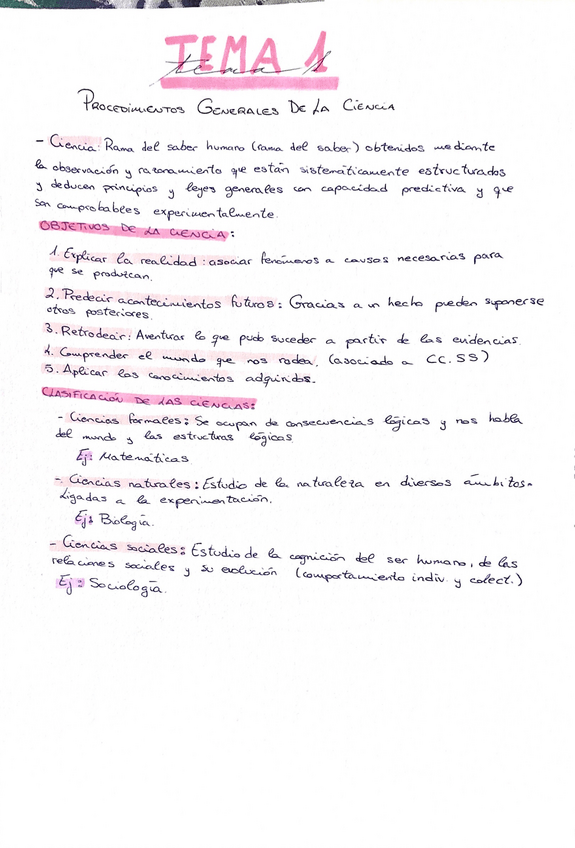 TEMA 1
tema 1
PROCEDIMIENTOS GENERALES DE LA CIENCIA
- Ciencia: Rama del saber humano (rama del saber) obtenidos mediante
la observación y razonamiento que están sistemáticamente estructurados
y deducen principios y leyes generales con capacidad predictiva y que
son comprobables experimentalmente.
OBJETIVOS DE LA CIENCIA:
1. Explicar la realidad: asociar fenómenos a causas necesarias para
que se produzcan.
2. Predecir acontecimientos futuros: Gracias a un hecho pueden suponerse
otros posteriores.
3. Retrodecir: Aventurar lo que pudo suceder a partir de las evidencias.
4. Comprender el mundo que nos rodea. (asociado a CC.SS)
5. Aplicar los conocimientos adquiridos.
CLASIFICACIÓN DE LAS CIENCIAS:
- Ciencias formales: Se ocupan de consecuencias lógicas y nos habla
del mundo y las estructuras lógicas
Ej: Matemáticas
- Ciencias naturales: Estudio de la naturaleza en diversos ámbitos.
Ligadas a la experimentación.
Ej: Biología.
- Ciencias sociales: Estudio de la cognición del ser humano, de las
relaciones sociales y su evolución (comportamiento indiv. y colect.)
Ej: Sociología.